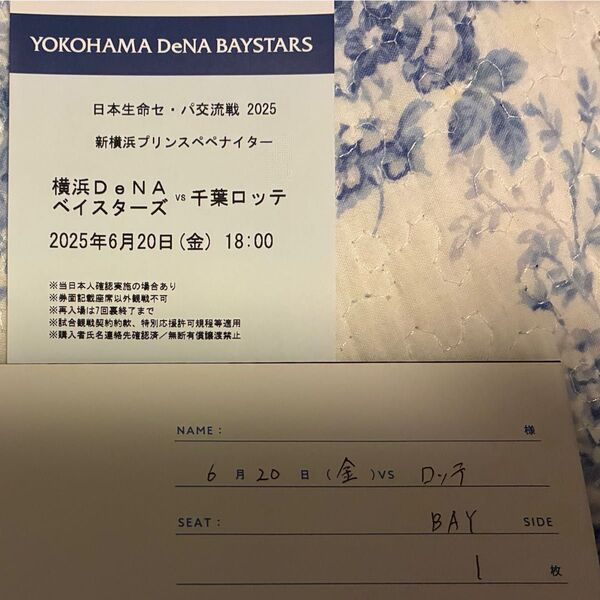 YOKOHAMA DeNA BAYSTARS
日本生命セ・パ交流戦 2025
新横浜プリンスペペナイター
横浜DeNA
ベイスターズ vs 千葉ロッテ
2025年6月20日(金) 18:00
※当日本人確認実施の場合あり
※券面記載座席以外観戦不可
※再入場は7回裏終了まで
※試合観戦契約約款、特別応援許可規程等適用
※購入者氏名連絡先確認済/無断有償譲渡禁止
NAME: 様
6月20日(金)VS ロッテ
SEAT: BAY SIDE
1枚